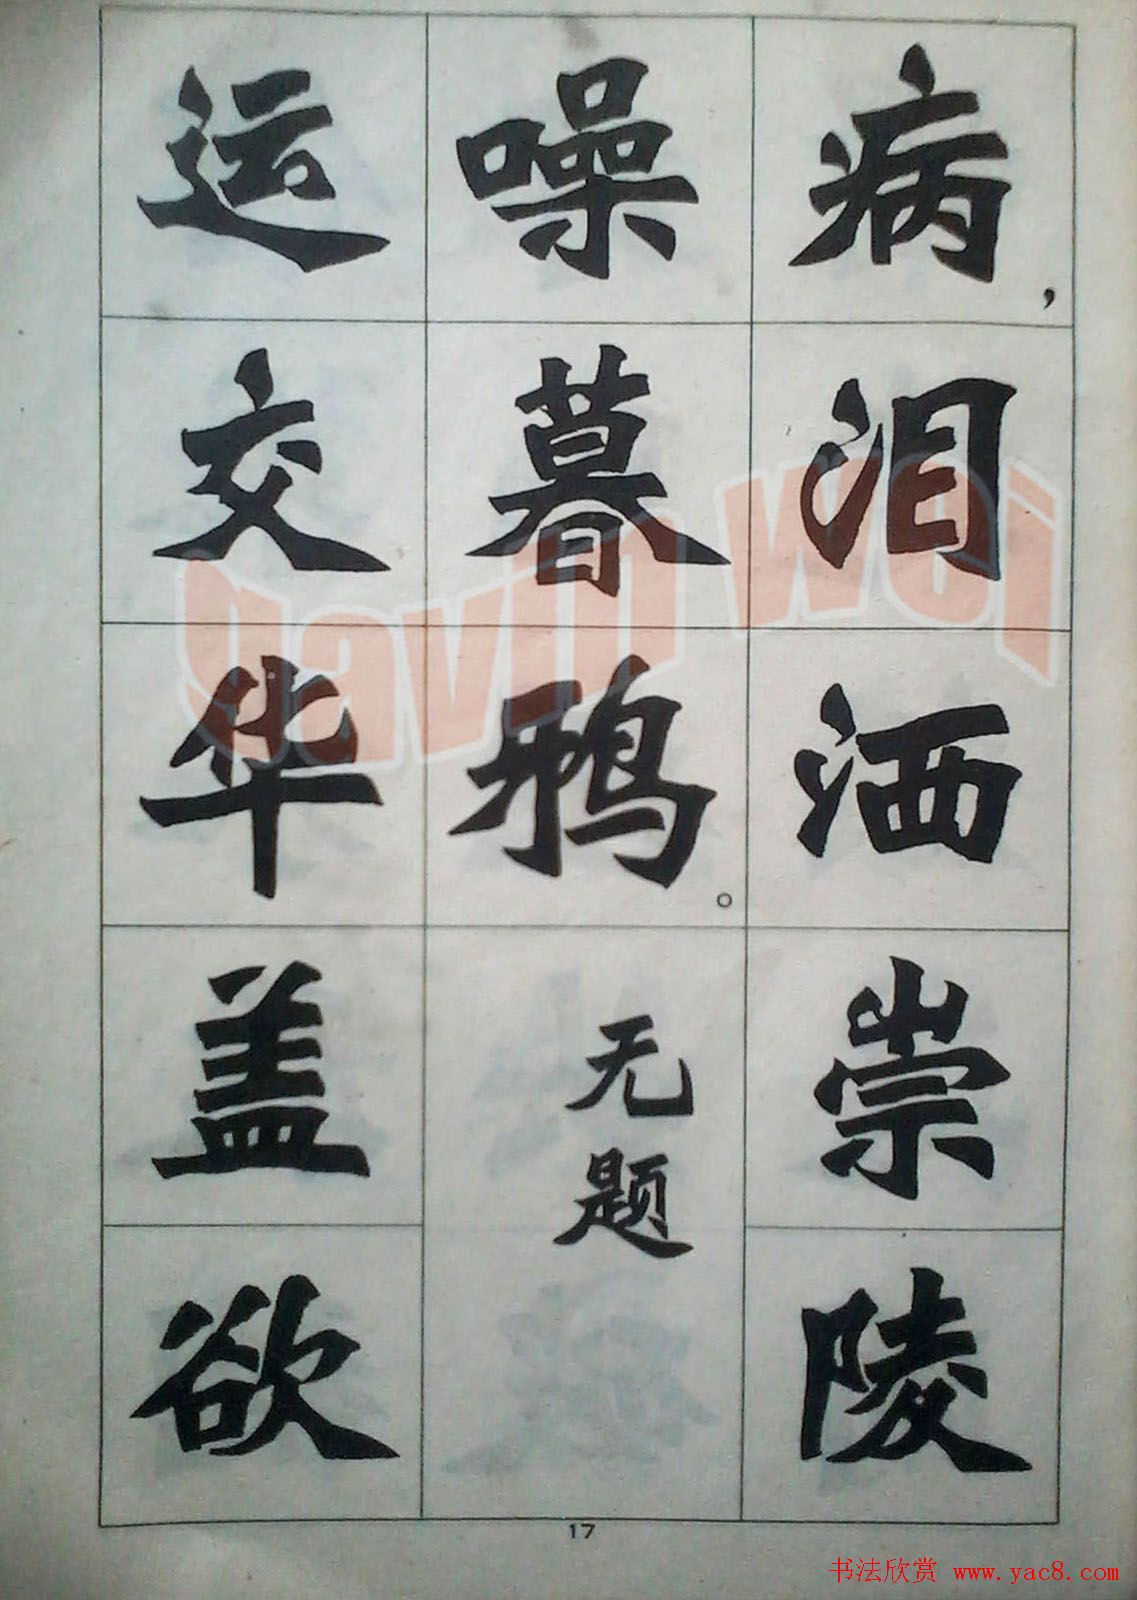 病，泪洒崇陵
噪暮鸦。
无题
运交华盖欲
17
gavin wei
书法欣赏 www.yac8.com